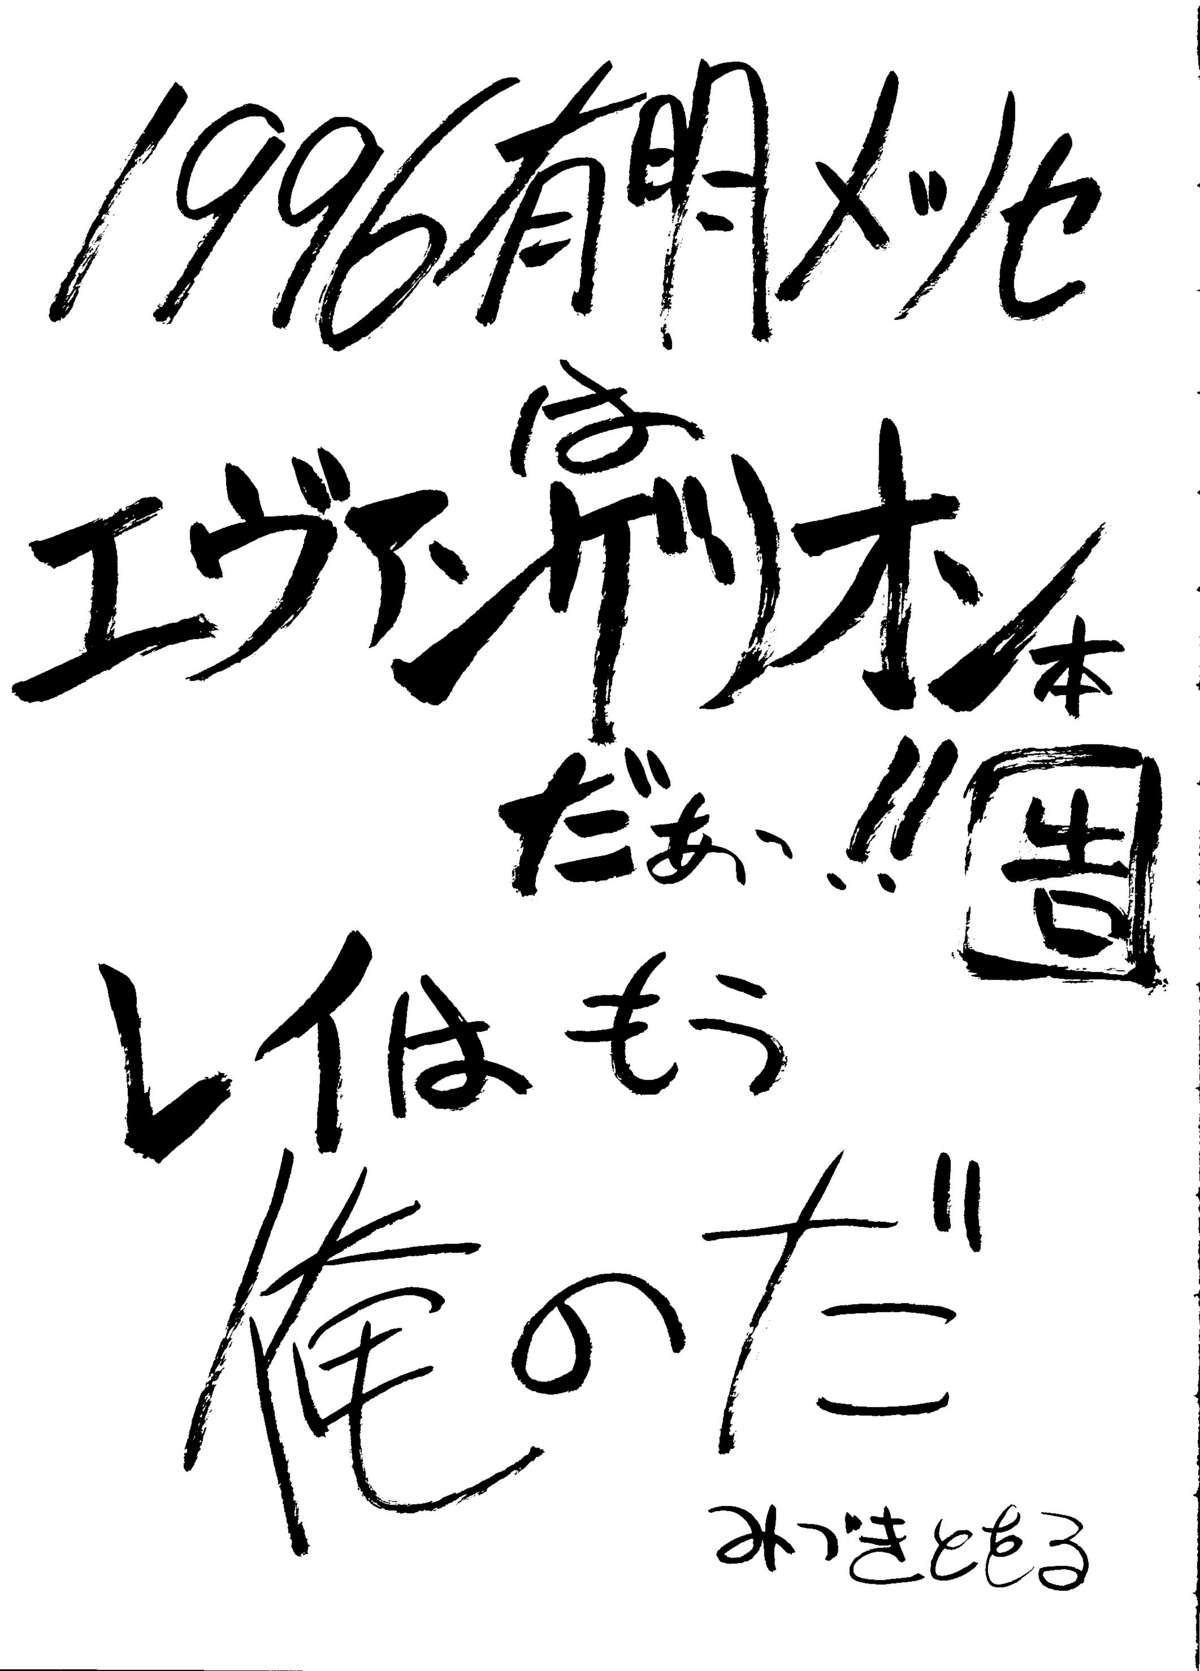 1996有明メッセ
は
エヴァンゲリオン本
だぁっ!!
告
レイはもう
俺のだ
みづきともる